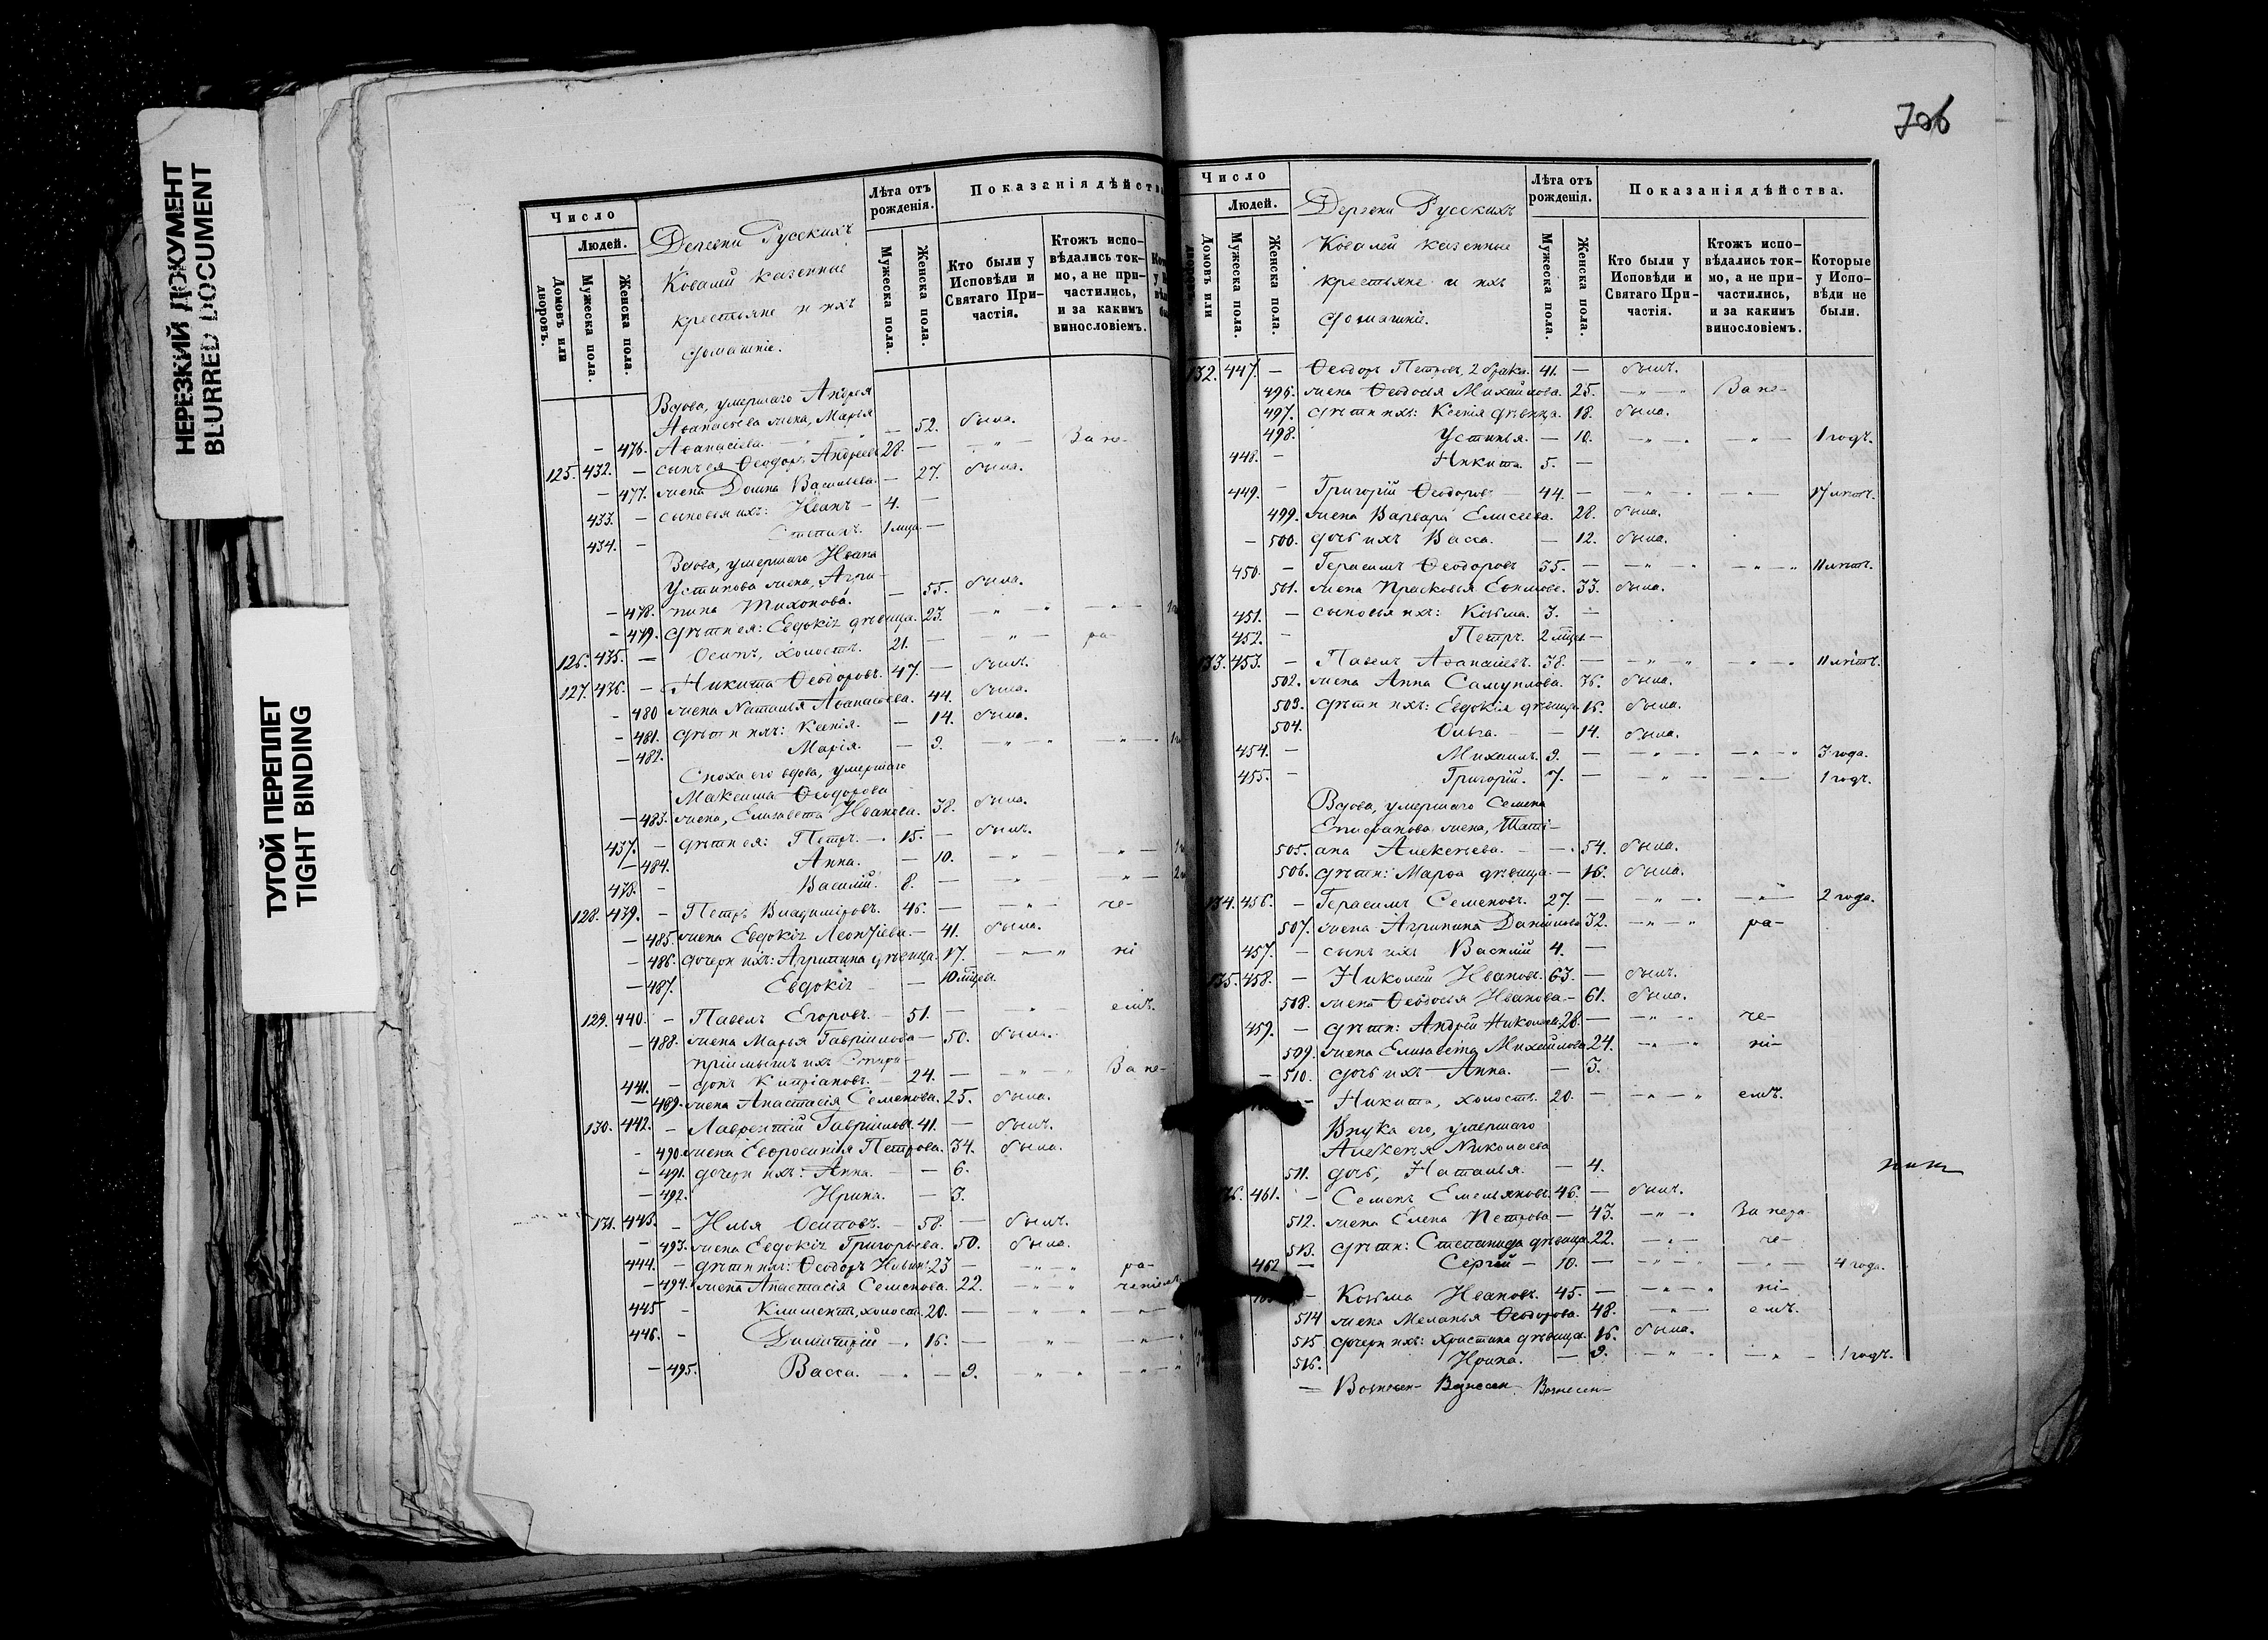 НЕРЕЗКИЙ ДОКУМЕНТ
BLURRED DOCUMENT
ТУГОЙ ПЕРЕПЛЕТ
TIGHT BINDING
Число
Людей.
Домовъ или дворовъ.
Мужеска пола.
Женска пола.
Деревни Русскихъ
Ковалей казенные
крестьяне и ихъ
домашніе.
Лѣта отъ рожденія.
Мужеска пола.
Женска пола.
Показанія дѣйства
Кто были у Исповѣди и Святаго Причастія.
Ктожъ исповѣдались токмо, а не причастились, и за какимъ винословіемъ.
Вдова, умершаго Андрея
Аѳанасьева жена, Марья
– 476. Аѳанасіева. – 52. была.
125. 432. – сынъ ея Ѳеодоръ Андреевъ 28. – За не-
– 477. жена Домна Васильева. – 27. была.
433. – сыновья ихъ: Иванъ – 4. –
434. – Степанъ. 1 мца. –
Вдова, умершаго Ивана
Устинова жена, Агри-
– 478. пина Тихонова. – 55. была.
– 479. дѣти ея: Евдокія дѣвица. 23.
126. 435. – Осипъ, холостъ. 21. – ра-
127. 436. – Никита Ѳеодоровъ. 47. – былъ.
– 480 жена Наталья Аѳанасьева. 44. была.
– 481. дѣти ихъ: Ксенія. – 14. была.
– 482. Марія. – 9.
Сноха его вдова, умершаго
Максима Ѳеодорова
– 483. жена, Елизавета Иванова. 38. была.
437. – дѣти ея: Петръ. – 15. – былъ.
– 484. Анна. – 10.
438. – Василій. 8. –
128. 439. – Петръ Владиміровъ. 46. – че-
– 485. жена Евдокія Леонтіева – 41. была.
– 486. дочери ихъ: Агрипина дѣвица. 17. ні
– 487. Евдокія – 10 мцевъ.
129. 440. – Павелъ Егоровъ. – 51. – емъ.
– 488. жена Марья Гавріилова – 50. была.
пріимышъ ихъ Спири-
441. – донъ Кипріановъ. – 24. – За не-
– 489. жена Анастасія Семенова. 25. была.
130. 442. – Лаврентій Гавріиловъ. 41. – былъ.
– 490. жена Евфросинія Петрова. 34. была.
– 491. дочери ихъ: Анна. – 6.
– 492. Ирина. – 3.
131. 443. – Илья Осиповъ. – 58. – былъ.
– 493. жена Евдокія Григорьева. 50. была.
444. – дѣти ихъ: Ѳеодоръ Ильинъ 23 – ра-
– 494. жена Анастасія Семенова. 22. ченіемъ
445 – Климентъ, холостъ. 20. –
446. – Димитрій –. 16. –
– 495. Васса. – 9.
706
Число
Людей.
Домовъ или дворовъ.
Мужеска пола.
Женска пола.
Деревни Русскихъ
Ковалей казенные
крестьяне и ихъ
домашніе.
Лѣта отъ рожденія.
Мужеска пола.
Женска пола.
Показанія дѣйства.
Кто были у Исповѣди и Святаго Причастія.
Ктожъ исповѣдались токмо, а не причастились, и за какимъ винословіемъ.
Которые у Исповѣди не были.
132. 447. – Ѳеодоръ Петровъ, 2 брака. 41. – былъ.
496. жена Ѳеодосія Михайлова. 25. За не-
497. дѣти ихъ: Ксенія дѣвица. 18. была.
498. Устинья. – 10. 1 годъ.
448. – Никита. 5. –
449. – Григорій Ѳеодоровъ 44. – 17 лѣтъ.
499. жена Варвара Елисеева. 28. была.
– 500. дочь ихъ Васса. – 12. была.
450. – Герасимъ Ѳеодоровъ 35. – 11 лѣтъ.
501. жена Прасковья Ефимова. 33. была.
451. – сыновья ихъ: Козьма. 3. –
452. – Петръ. 2 мцы. –
133. 453. – Павелъ Аѳанасіевъ. 38. – 11 лѣтъ.
502. жена Анна Самуилова. 36. была.
503. дѣти ихъ: Евдокія дѣвица 16. была.
504. Ольга. – 14. была.
454. – Михаилъ. 9. – 3 года.
455. – Григорій. 7. – 1 годъ.
Вдова, умершаго Семена
Епифанова жена, Тати-
505. ана Алексѣева. – 54. была.
506. дѣти: Марѳа дѣвица. – 16. была.
134. 456. – Герасимъ Семеновъ. 27. – 2 года.
507. жена Агрипина Даніилова 32. ра-
457. – сынъ ихъ Василій 4. –
135. 458. – Николай Ивановъ. 63. – былъ.
508. жена Ѳеодосья Иванова – 61. была.
459. – дѣти: Андрей Николаевъ 28. – че-
509. жена Елизавета Михайлова 24. ні-
– 510. дочь ихъ Анна. – 3.
– Никита, холостъ. 20. – емъ.
Внука его, умершаго
Алексѣя Николаева
511. дочь, Наталья. – 4.
461. – Семенъ Емельяновъ. 46. – былъ.
512. жена Елена Петрова – 43. За нера-
513. дѣти: Степанида дѣвица. 22. че-
462 – Сергій – 10. – 4 года.
– Козьма Ивановъ. 45. – ні-
514 жена Меланья Ѳеодорова. 48. емъ.
515 дочери ихъ: Христина дѣвица. 16. была.
516. Ирина. – 9. 1 годъ.
– Вознесен- Вознесен- Вознесен-